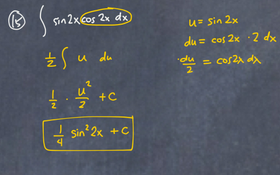 (15) ∫ sin2x cos 2x dx
u = sin 2x
du = cos2x · 2 dx
1/2 ∫ u du
· du/2 = cos2x dx
1/2 · u²/2 + C
1/4 sin² 2x + C